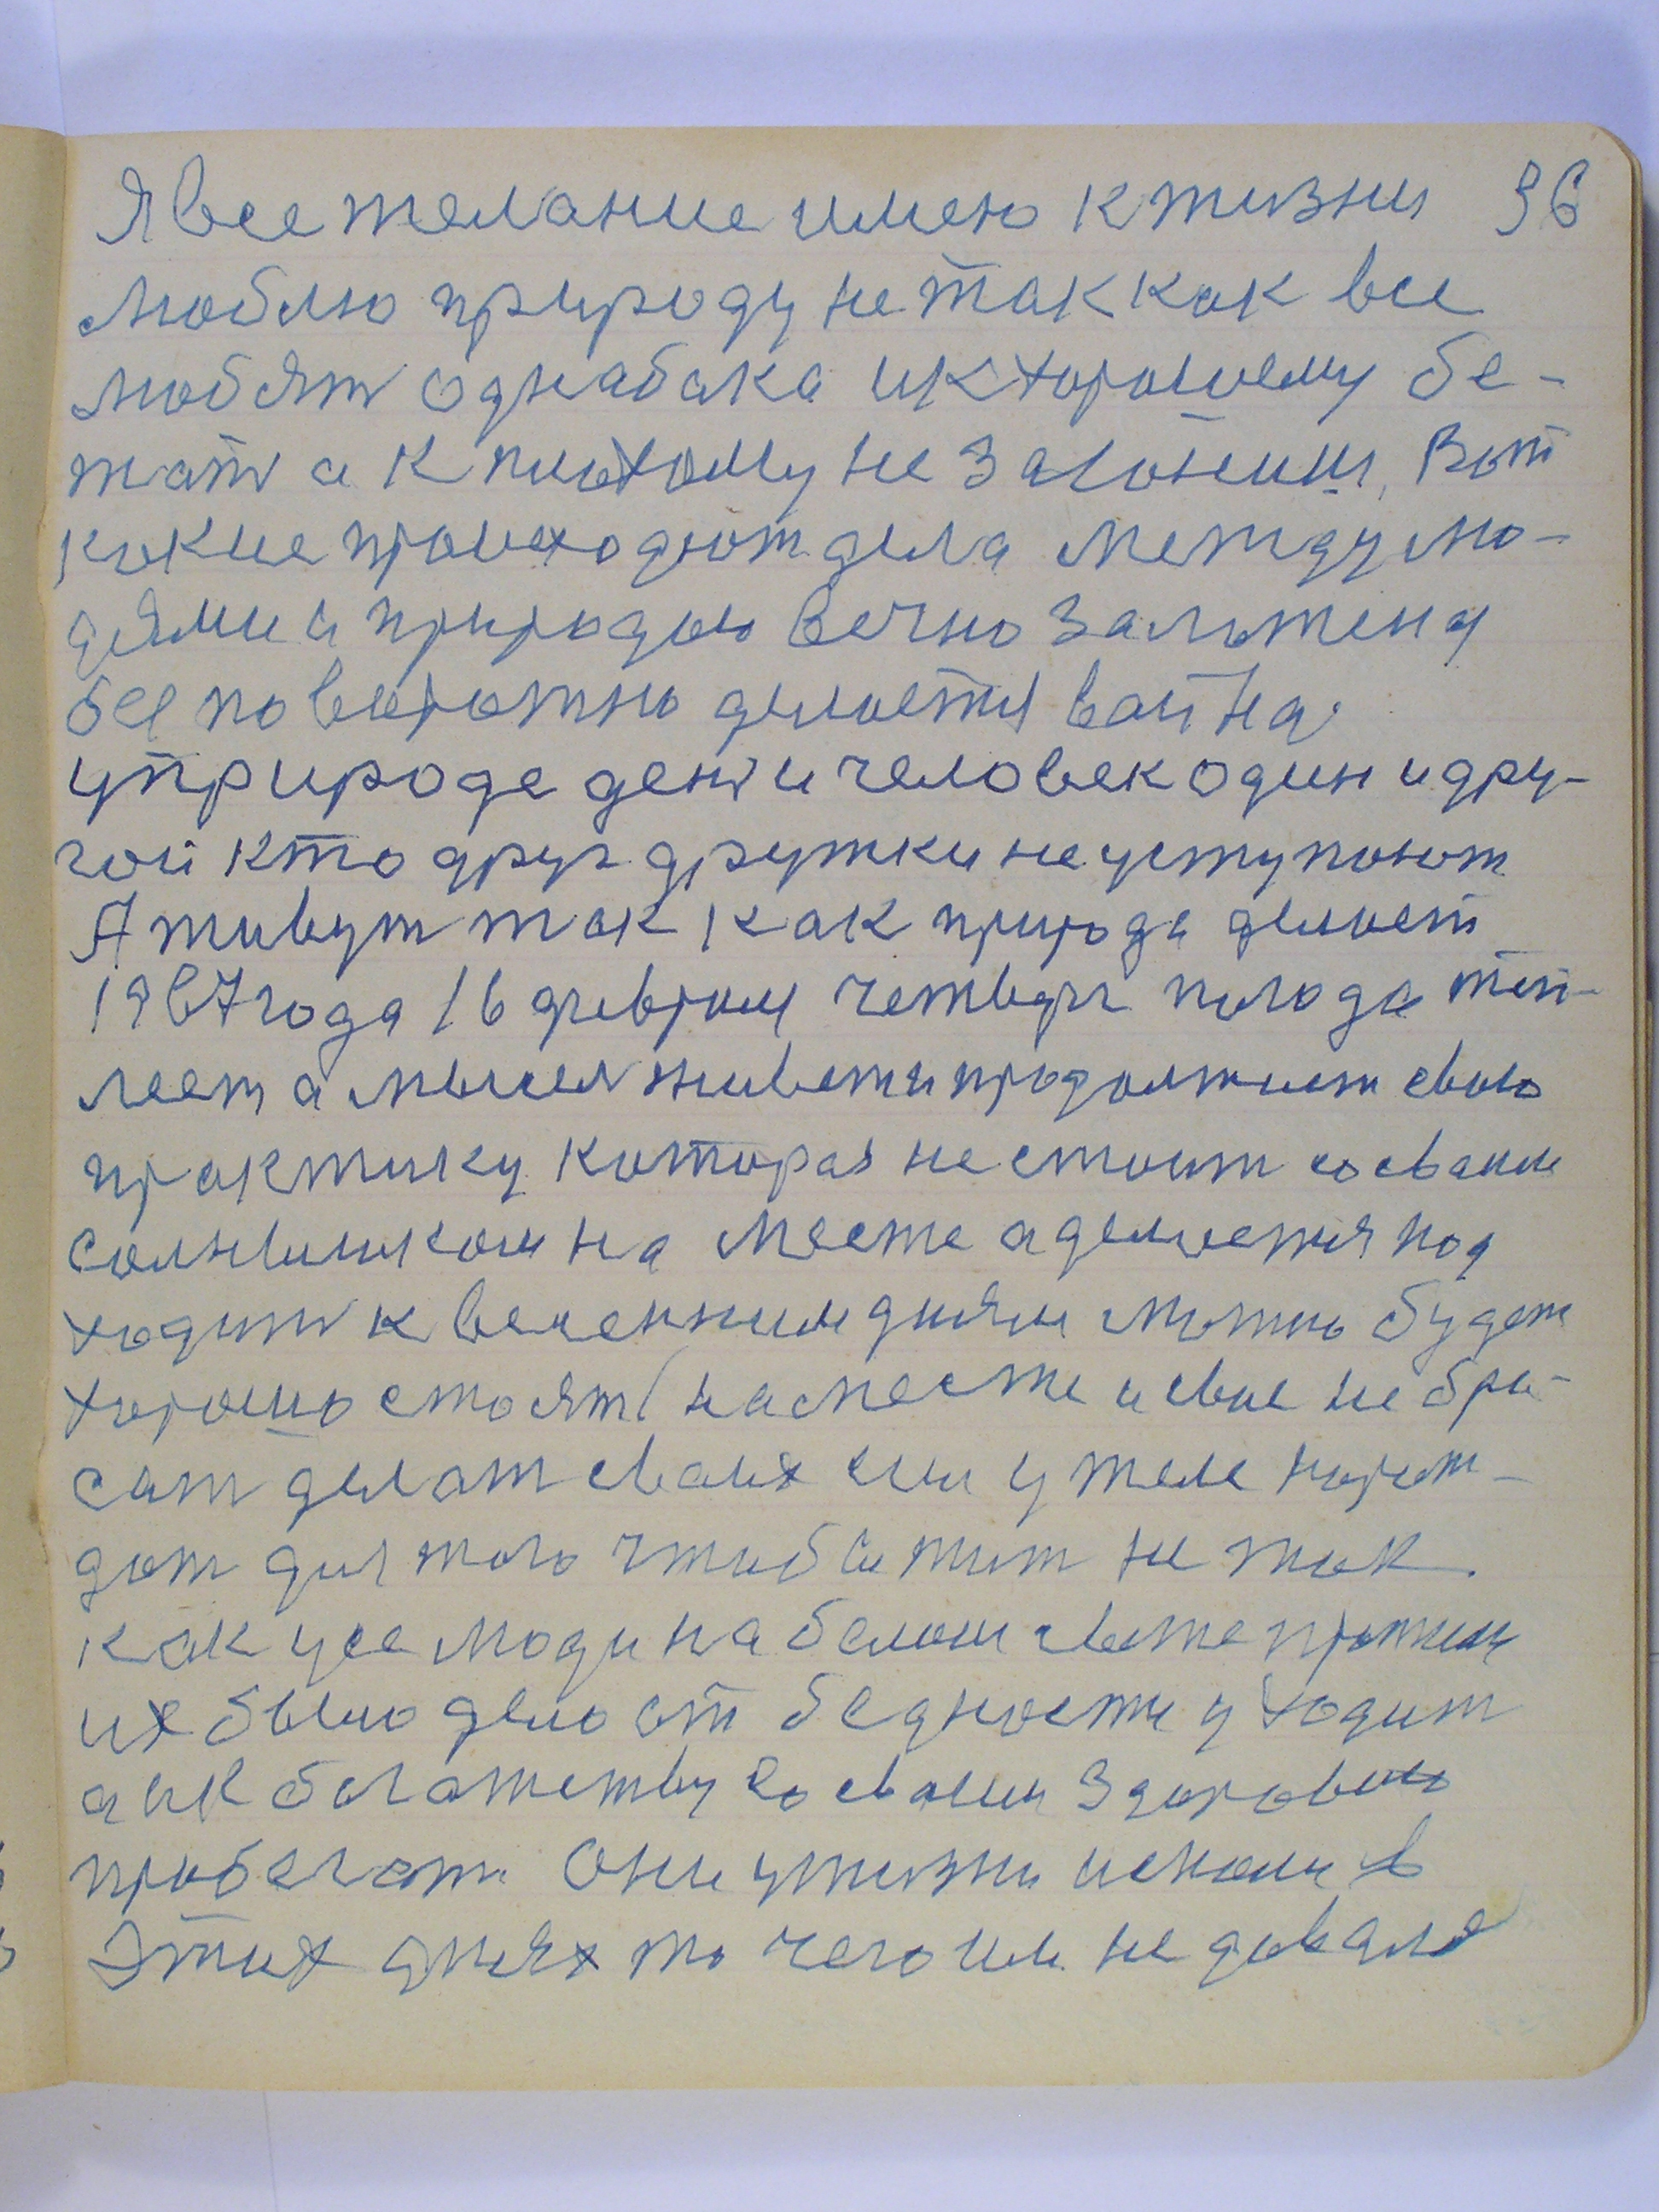 Я все желание имею к жизни 96
люблю природу не так как все
любят однабака и к хорошему бе-
жат а к плохому не загониш, Вот
какие происходют дела между лю-
дями и природою вечно заложена
бесповоротно делается война.
у природе день и человек один и дру-
гой кто друг дружки не уступают
А живут так как природа делает
1967 года 16 февраля четверг погода теп-
леет а мысля живет и продолжает свою
практику которая не стоит со своим
солнышком на месте а делается под
ходит к весенним дням можно будет
хорошо стоять на месте и свое не бро-
сат делат своих сил у теле нарож-
дат для того чтобы жит не так
как усе люди на белом свете прожили
их было дело от бедности уходит
а и к богатству со своим здоровию
пробегат. Они у жизни искали в
этих днях то чего им не давала